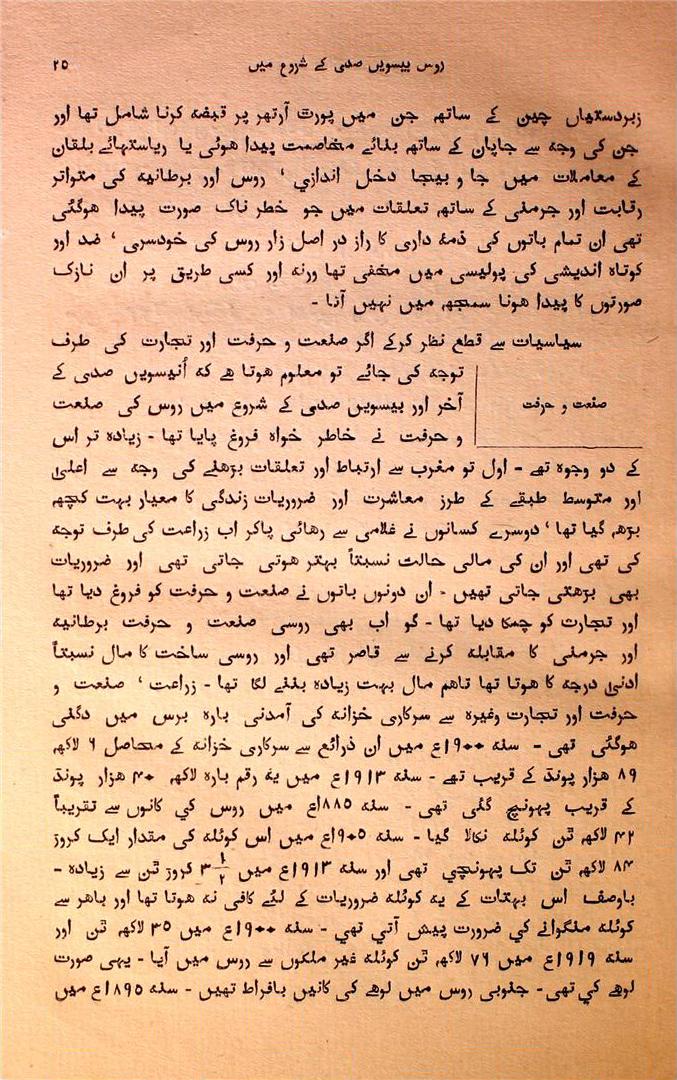 روس بیسویں صدی کے شروع میں ۲۵
زبردستیاں چین کے ساتھ جن میں پورٹ آرتھر پر قبضہ کرنا شامل تھا اور
جن کی وجہ سے جاپان کے ساتھ بنائے مخاصمت پیدا ہوئی یا ریاستہائے بلقان
کے معاملات میں جا و بیجا دخل اندازي ' روس اور برطانیہ کی متواتر
رقابت اور جرمنی کے ساتھ تعلقات میں جو خطر ناک صورت پیدا ہوگئی
تھی ان تمام باتوں کی ذمہ داری کا راز در اصل زار روس کی خودسری ' ضد اور
کوتاہ اندیشی کی پولیسی میں مخفی تھا ورنہ اور کسی طریق پر ان نازک
صورتوں کا پیدا ہونا سمجھ میں نہیں آتا -
سیاسیات سے قطع نظر کرکے اگر صنعت و حرفت اور تجارت کی طرف
توجہ کی جائے تو معلوم ہوتا ہے کہ اُنیسویں صدی کے
صنعت و حرفت
آخر اور بیسویں صدی کے شروع میں روس کی صنعت
و حرفت نے خاطر خواہ فروغ پایا تھا - زیادہ تر اس
کے دو وجوہ تھے - اول تو مغرب سے ارتباط اور تعلقات بڑھنے کی وجہ سے اعلیٰ
اور متوسط طبقے کے طرز معاشرت اور ضروریات زندگی کا معیار بہت کچھ
بڑھ گیا تھا ' دوسرے کسانوں نے غلامی سے رہائی پاکر اب زراعت کی طرف توجہ
کی تھی اور ان کی مالی حالت نسبتاً بہتر ہوتی جاتی تھی اور ضروریات
بھی بڑھتی جاتی تھیں - ان دونوں باتوں نے صنعت و حرفت کو فروغ دیا تھا
اور تجارت کو چمکا دیا تھا - گو اب بھی روسی صنعت و حرفت برطانیہ
اور جرمنی کا مقابلہ کرنے سے قاصر تھی اور روسی ساخت کا مال نسبتاً
ادنیٰ درجہ کا ہوتا تھا تاہم مال بہت زیادہ بننے لگا تھا - زراعت ' صنعت و
حرفت اور تجارت وغیرہ سے سرکاری خزانہ کی آمدنی بارہ برس میں دگنی
ہوگئی تھی - سنہ ۱۹۰۰ع میں ان ذرائع سے سرکاری خزانہ کے محاصل ۶ لاکھ
۸۹ ہزار پونڈ کے قریب تھے - سنہ ۱۹۱۳ع میں یہ رقم بارہ لاکھ ۴۰ ہزار پونڈ
کے قریب پہونچ گئی تھی - سنہ ۱۸۸۵ع میں روس کي کانوں سے تقریباً
۴۲ لاکھ ٹن کوئلہ نکالا گیا - سنہ ۱۹۰۵ع میں اس کوئلہ کی مقدار ایک کروڑ
۸۴ لاکھ ٹن تک پہونچي تھی اور سنہ ۱۹۱۳ع میں ۳ ۱/۲ کروڑ ٹن سے زیادہ -
باوصف اس بہتات کے یہ کوئلہ ضروریات کے لئے کافی نہ ہوتا تھا اور باہر سے
کوئلہ منگوانے کي ضرورت پیش آتی تھي - سنہ ۱۹۰۰ع میں ۳۵ لاکھ ٹن اور
سنہ ۱۹۱۹ع میں ۷۶ لاکھ ٹن کوئلہ غیر ملکوں سے روس میں آیا - یہی صورت
لوہے کي تھی - جنوبی روس میں لوہے کی کانیں بافراط تھیں - سنہ ۱۸۹۵ع میں